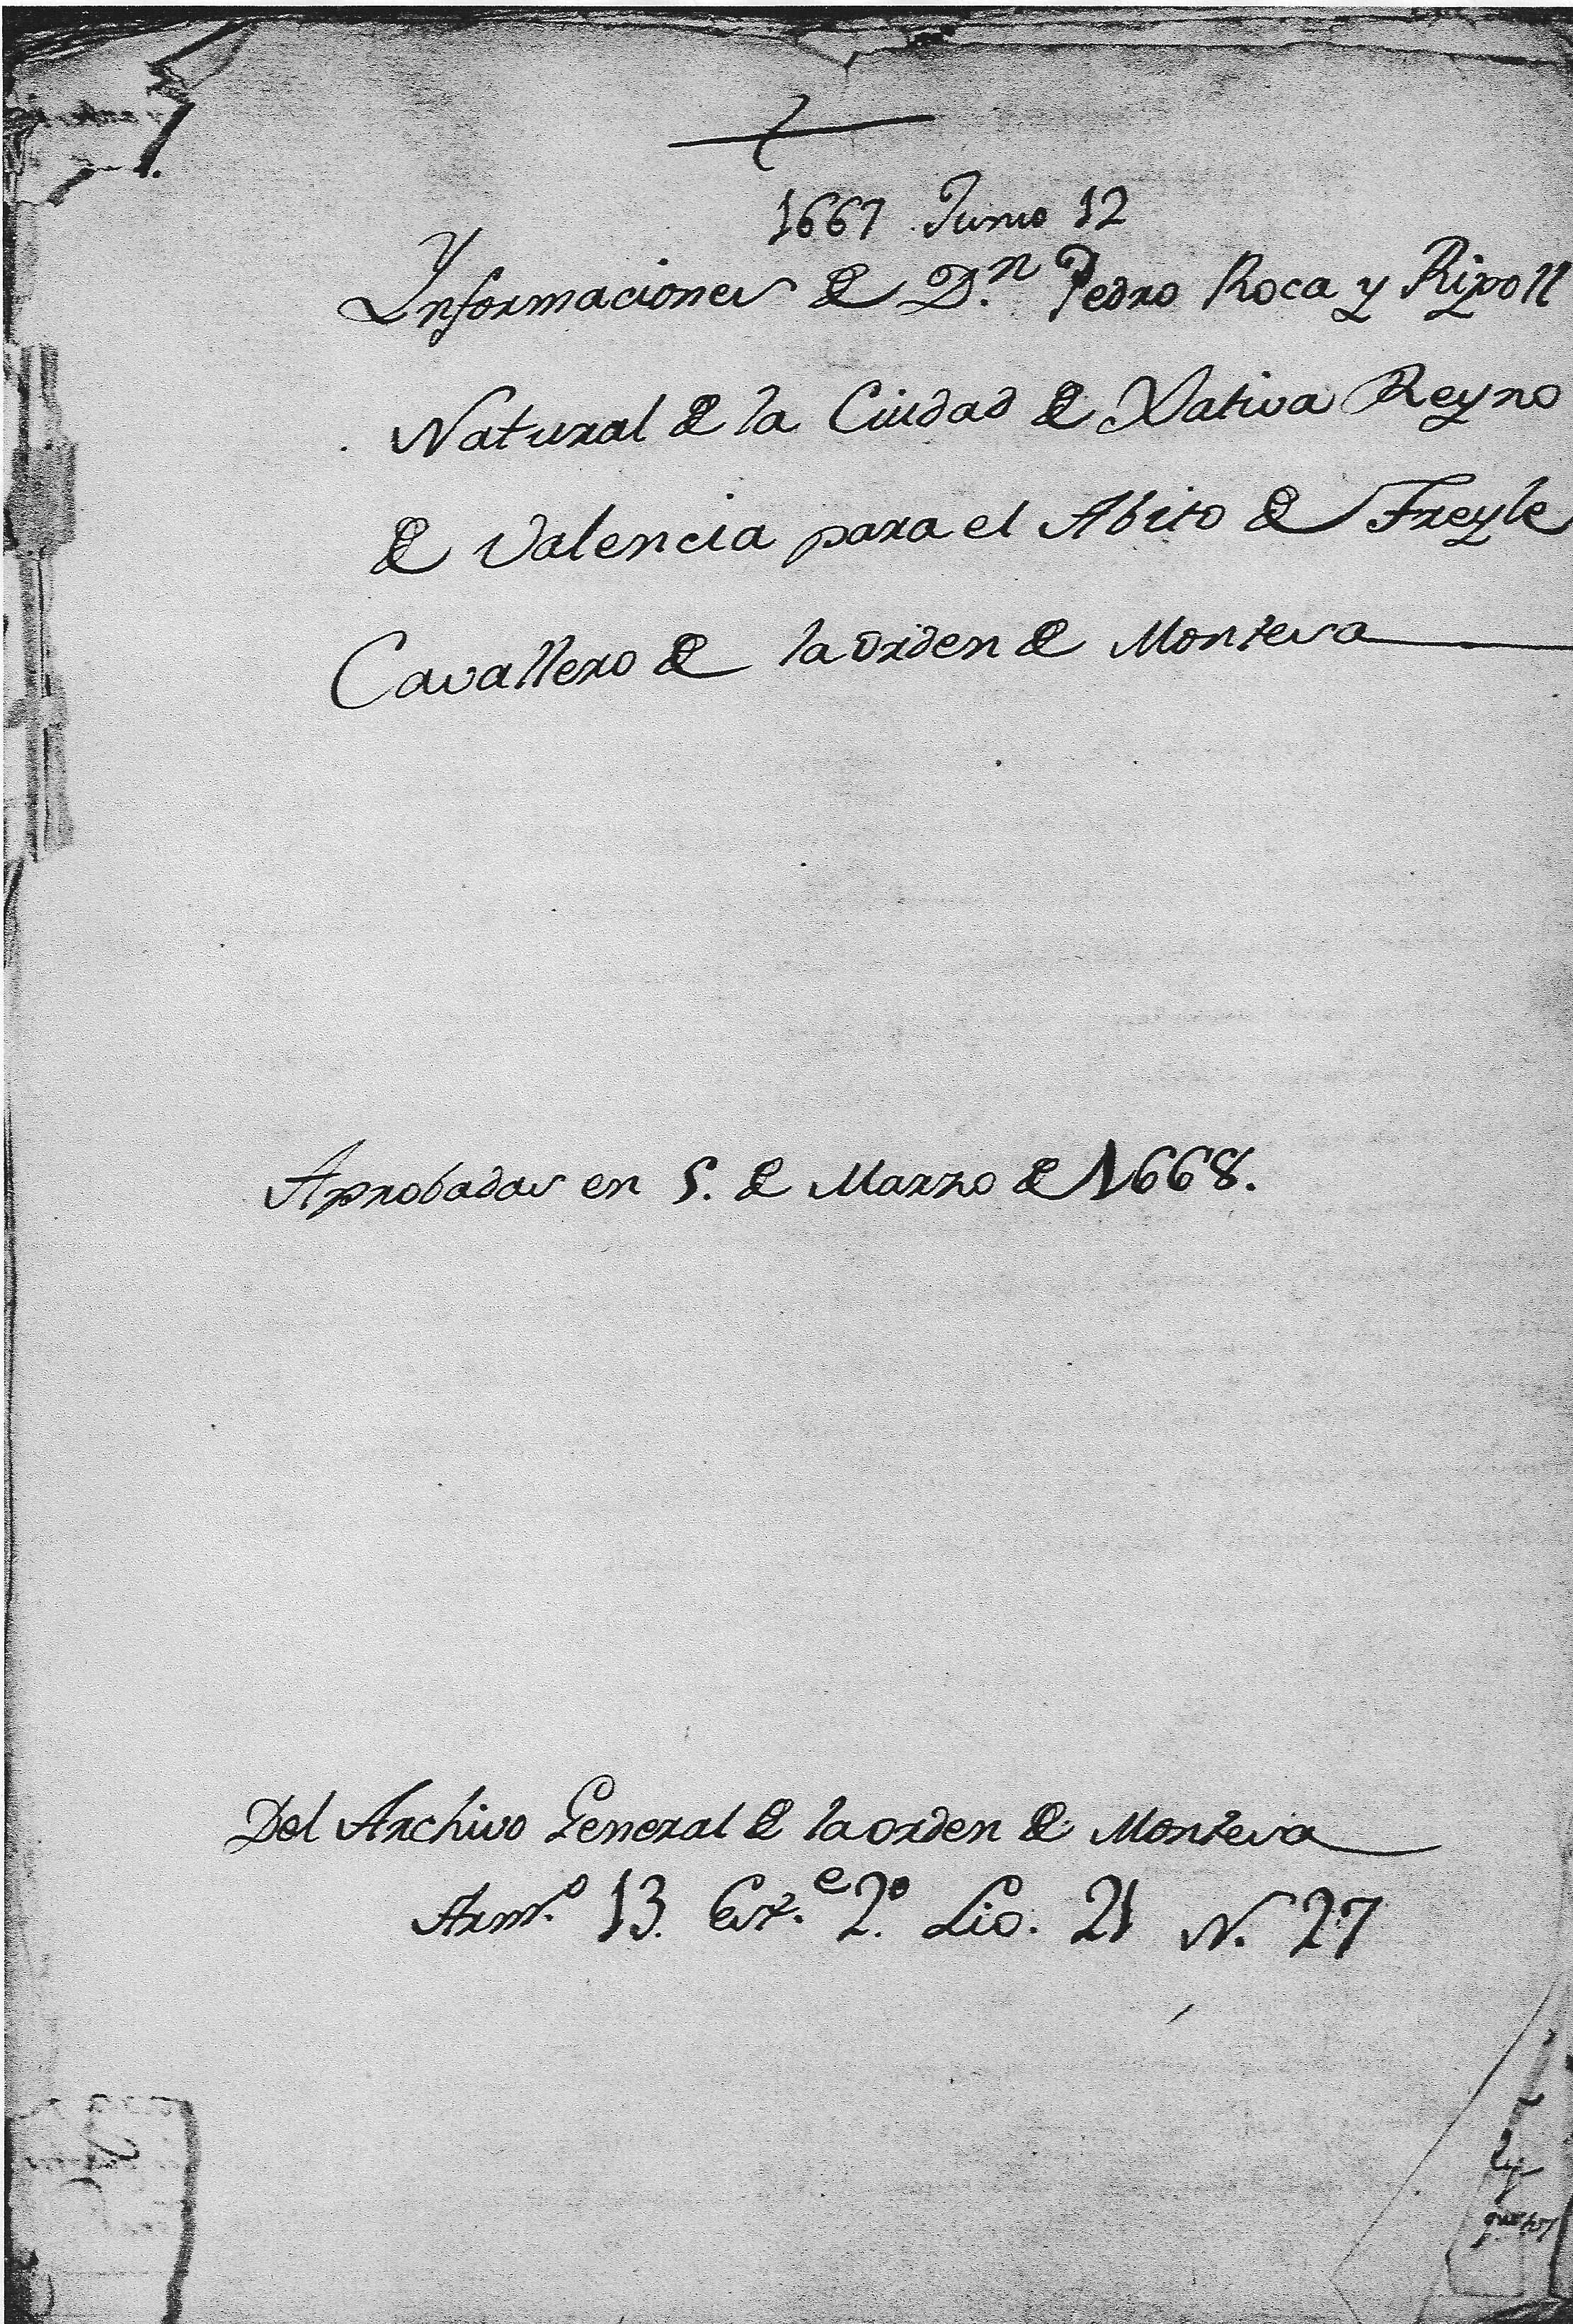 1667 Junio 12
Ynformaciones de D.n Pedro Roca y Ripoll
Natural de la Ciudad de Xativa Reyno
de Valencia para el Abito de Freyle
Cavallero de la orden de Montesa
Aprobadas en 5. de Marzo de 1668.
Del Archivo General de la orden de Montesa
Arm.o 13. Est.e 2.o Lio. 21 N. 27